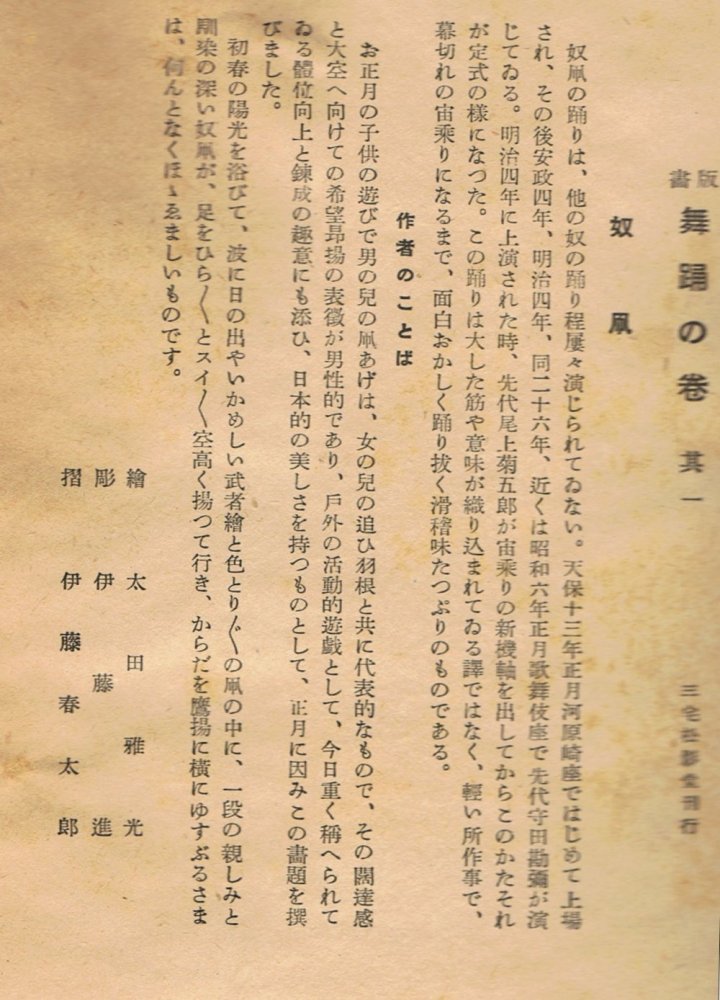 版畫
舞踊の卷 其一
三宅 刊行
奴凧
奴凧の踊りは、他の奴の踊り程屢々演じられてゐない。天保十三年正月河原崎座ではじめて上場
され、その後安政四年、明治四年、同二十六年、近くは昭和六年正月歌舞伎座で先代守田勘彌が演
じてゐる。明治四年に上演された時、先代尾上菊五郎が宙乘りの新機軸を出してからこのかたそれ
が定式の樣になつた。この踊りは大した筋や意味が織り込まれてゐる譯ではなく、輕い所作事で、
幕切れの宙乘りになるまで、面白おかしく踊り拔く滑稽味たつぷりのものである。
作者のことば
お正月の子供の遊びで男の兒の凧あげは、女の兒の追ひ羽根と共に代表的なもので、その闊達感
と大空へ向けての希望昂揚の表徵が男性的であり、戶外の活動的遊戲として、今日重く稱へられて
ゐる體位向上と鍊成の趣意にも添ひ、日本的の美しさを持つものとして、正月に因みこの畫題を撰
びました。
初春の陽光を浴びて、波に日の出やいかめしい武者繪と色とり〴〵の凧の中に、一段の親しみと
馴染の深い奴凧が、足をひら〳〵とスイ〳〵空高く揚つて行き、からだを鷹揚に橫にゆすぶるさま
は、何んとなくほゝゑましいものです。
繪 太田雅光
彫 伊藤進
摺 伊藤春太郎